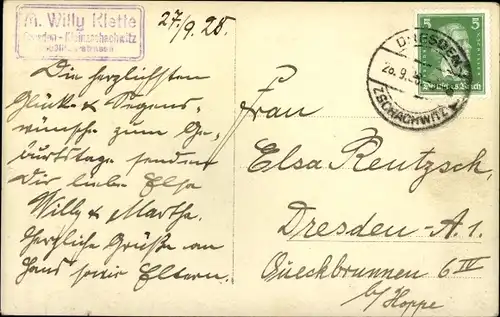 M. Willy Klette
Dresden-Kleinzschachwitz
27/9.25.
Die herzlichsten
Glück- & Segens-
wünsche zum Ge-
burtstage senden
Dir liebe Elsa
Willy & Marthe.
Herzliche Grüße an
Hans sowie Eltern.
DRESDEN
26.9.
ZSCHACHWITZ
5
5
Deutsches Reich
Frau
Elsa Rentzsch,
Dresden-A.1.
Queckbrunnen 6 IV
b/ Hoppe